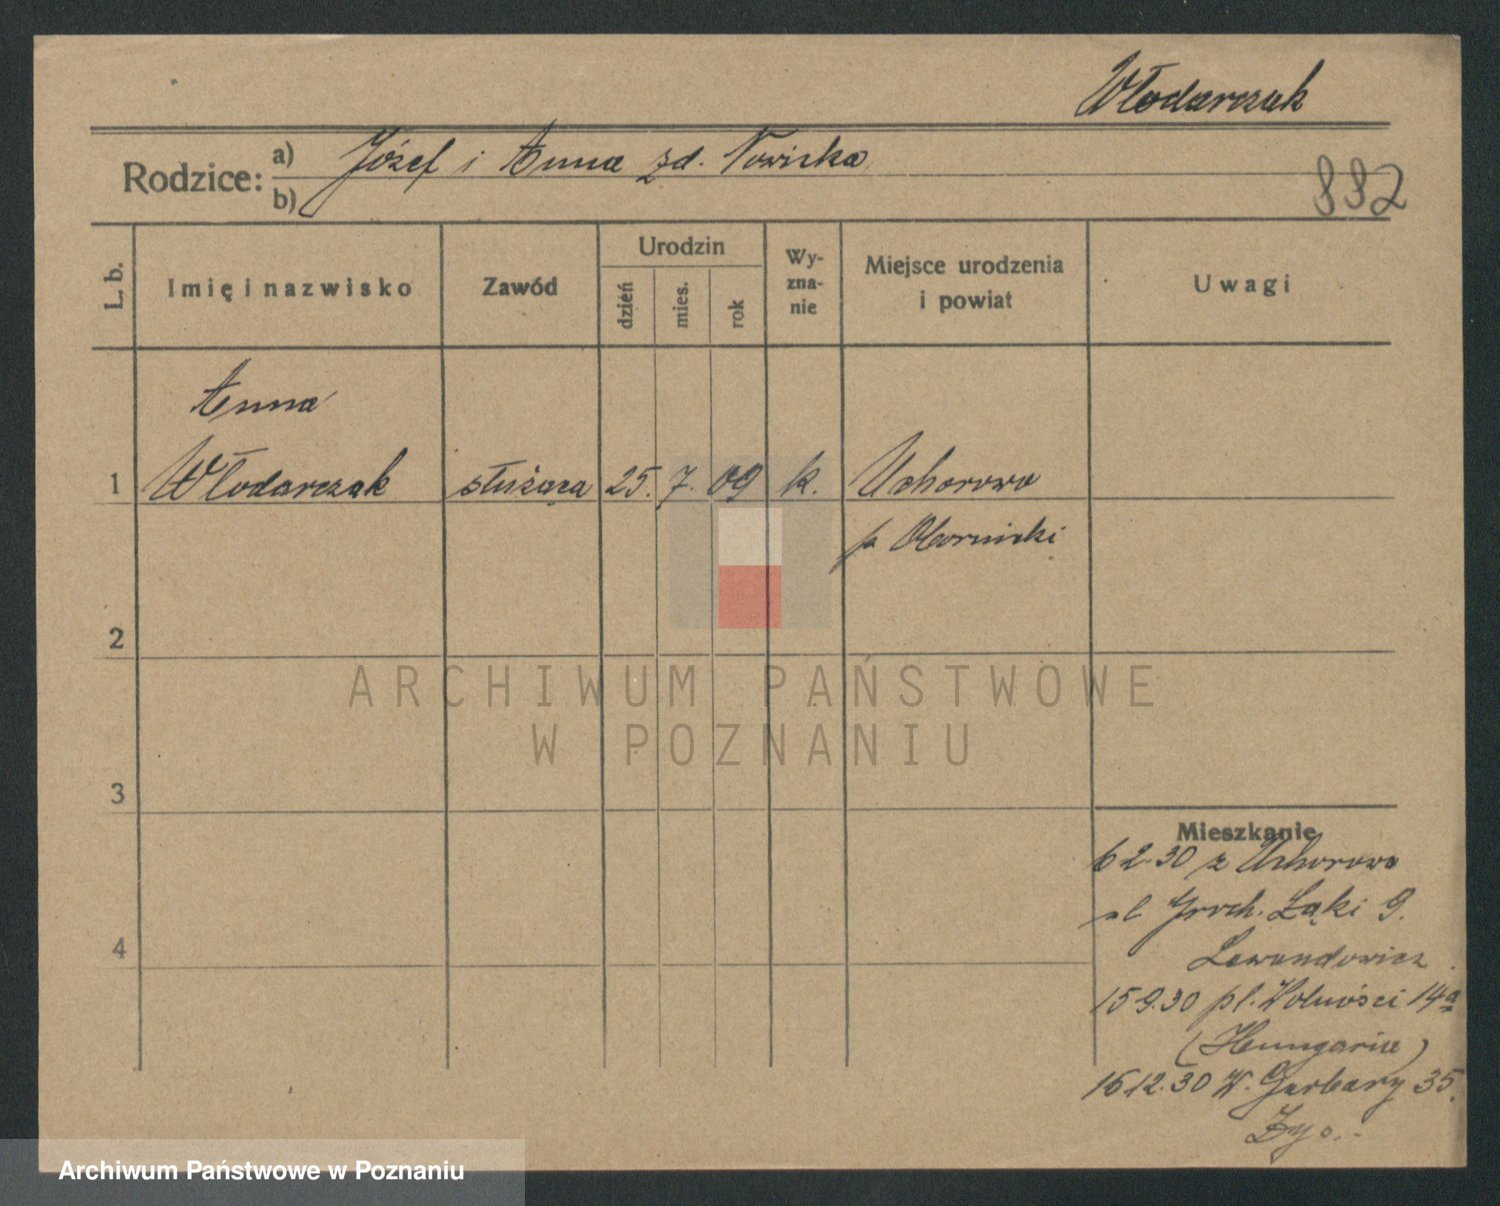 Włodarczak
Rodzice: a) Józef i Anna zd. Nowicka
b)
882
L. b.
Imię i nazwisko
Zawód
Urodzin
dzień
mies.
rok
Wy-
zna-
nie
Miejsce urodzenia
i powiat
Uwagi
Anna
1 Włodarczak służąca 25. 7. 09 k. Uchorowo
p. Obornicki
2
ARCHIWUM PAŃSTWOWE
W POZNANIU
3
Mieszkanie
6 2.30 z Uchorowo
Łąki 9.
Lewandowicz
4
15 9.30 pl. Wolności 14a
(Hungaria)
16 12.30 W. Garbary 35.
Archiwum Państwowe w Poznaniu